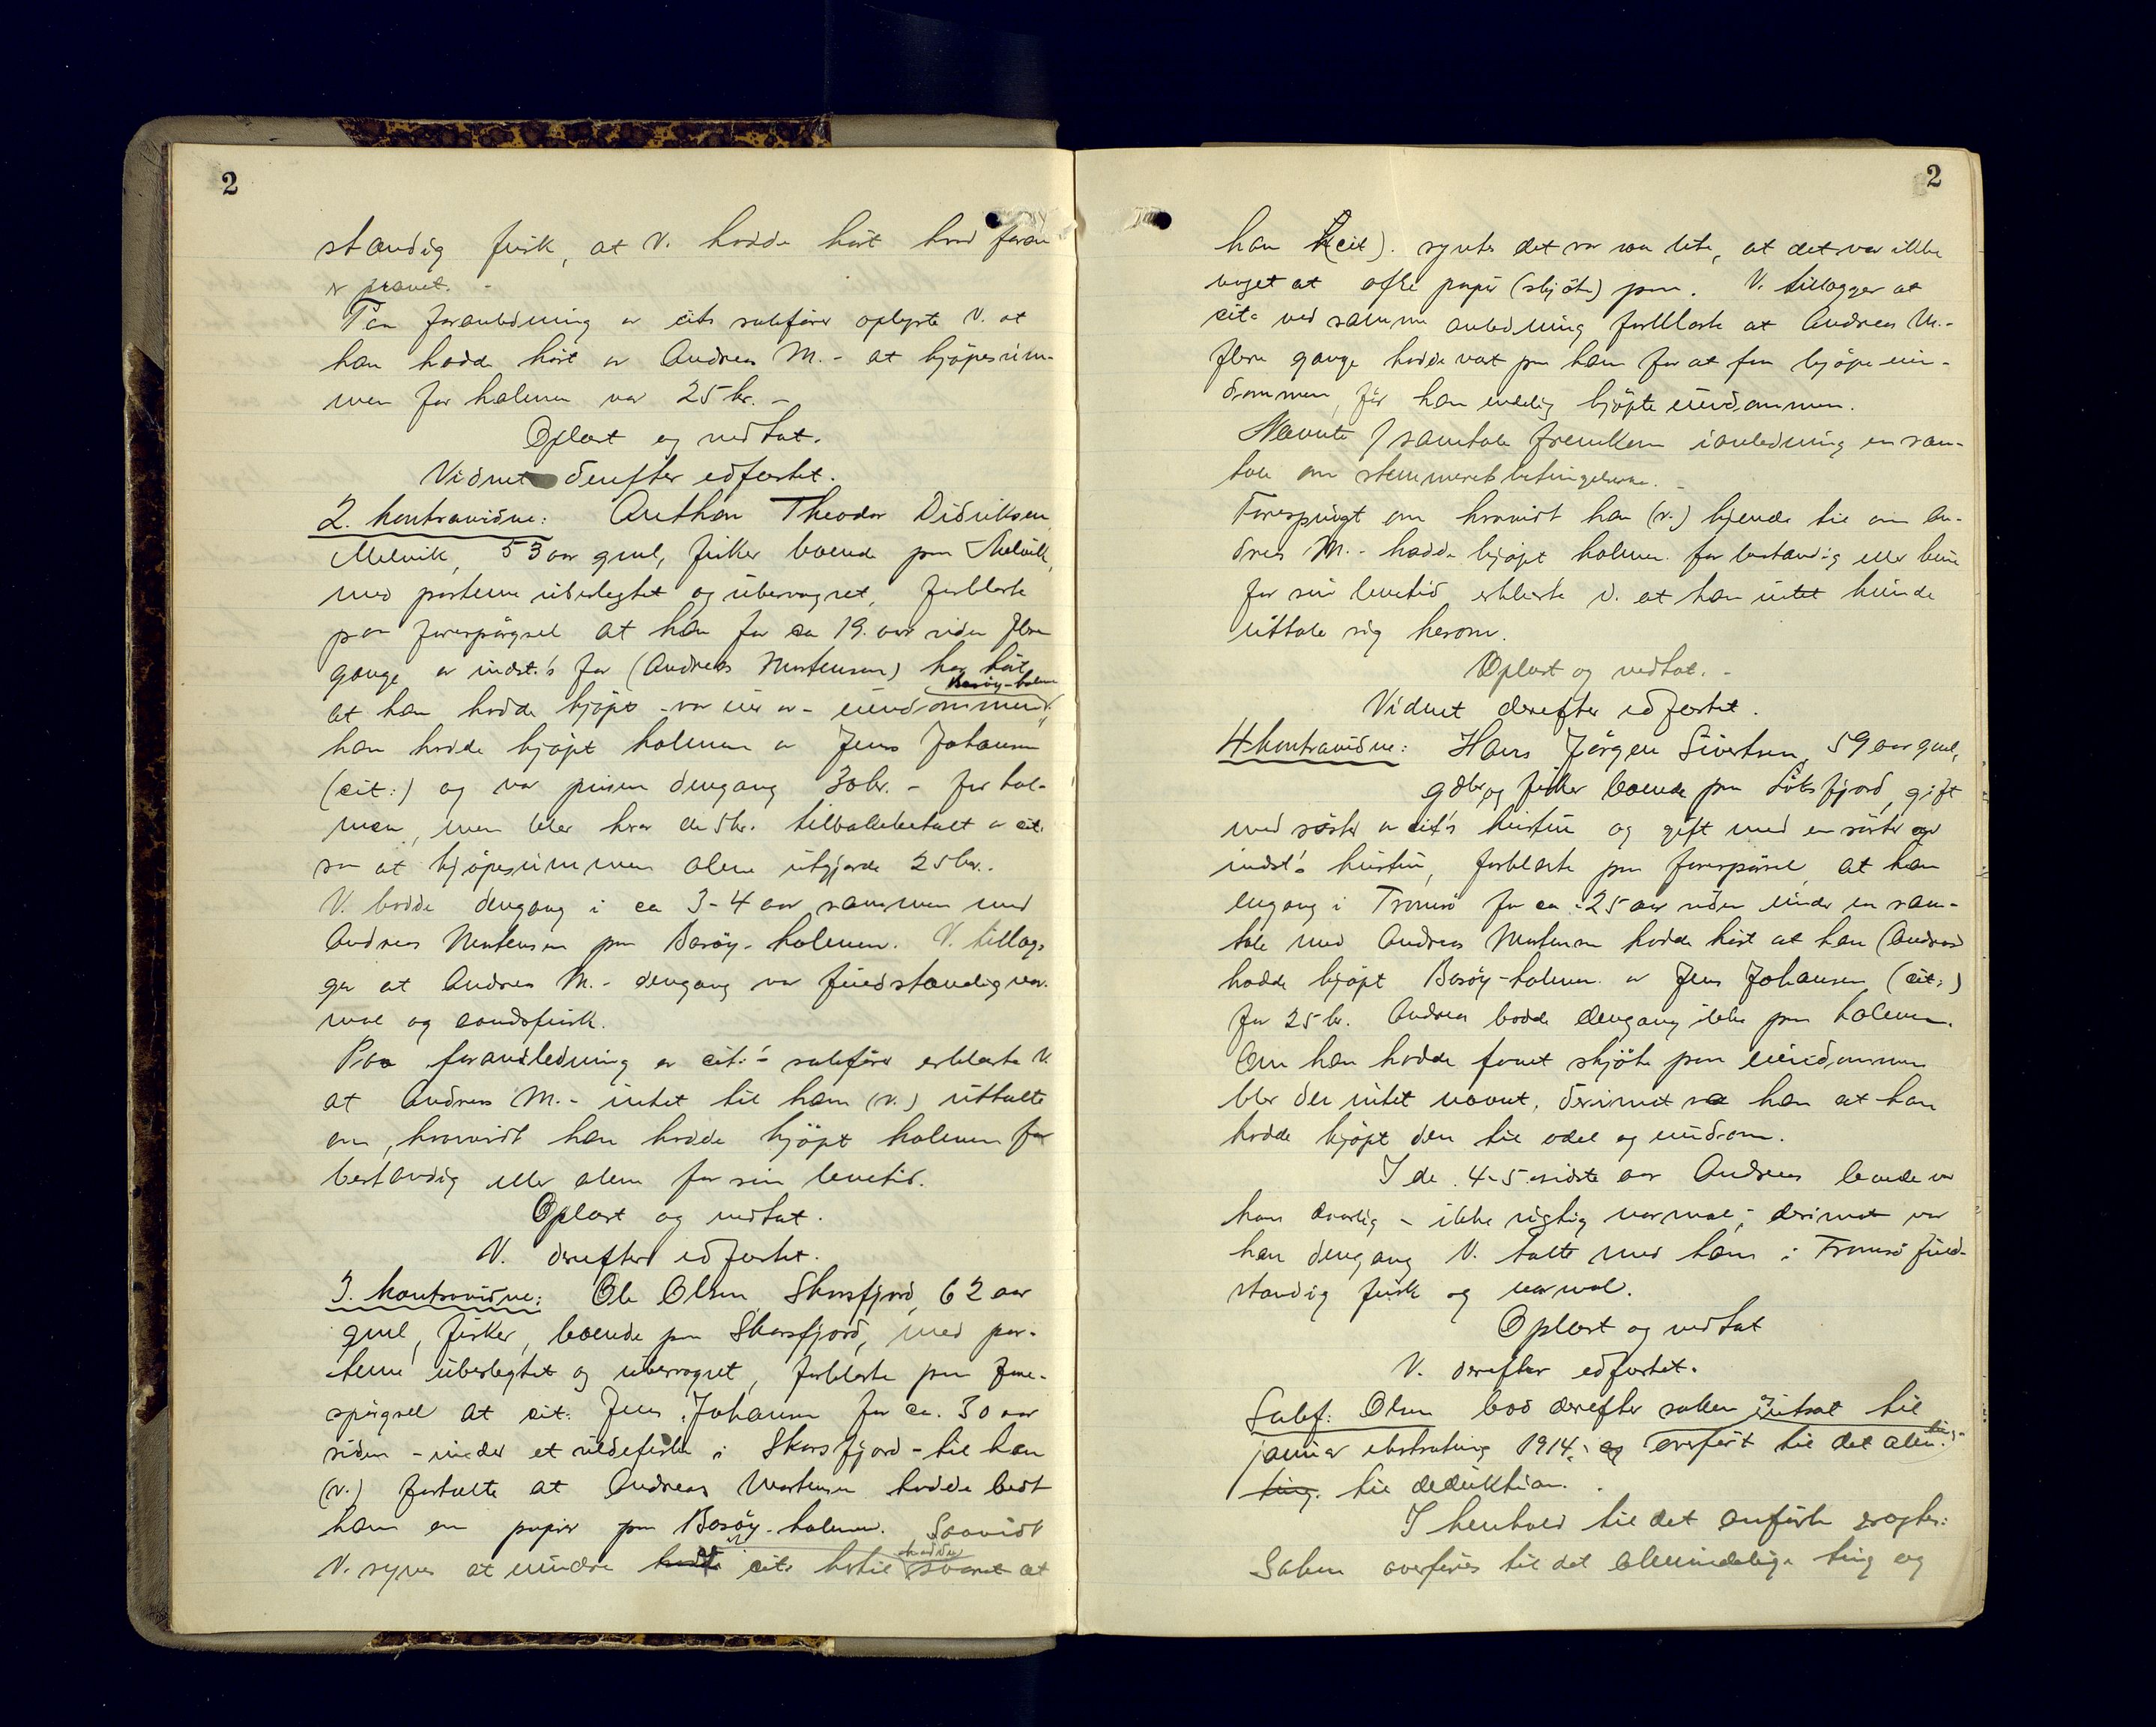 2
standig frisk, at V. hadde hørt hvad foran
er prover. -
Paa foranledning av cits sakfører oplyste V. at
han hadde hørt av Andreas M. - at kjøpesum-
men for holmen var 25 kr. -
Oplæst og vedtat.
Vidnet derefter edfæstet.
2. kontravidne: Anthon Theodor Didriksen
Melvik, 53 aar gml, fisker boende paa Melvik,
med parterne ubeslegtet og ubesvogret, forklarte
paa forespørgsel at han for ca 19. aar siden flere
gange av indst.'s far (Andreas Mortensen) har hørt
at han hadde kjøpt - var eier av - eiendommen Basøy-holmen
han hadde kjøpt holmen av Jens Johansen
(cit:) og var prisen dengang 30 kr. - for hol-
men, men blev herav de 5 kr. tilbakebetalt av cit.
saa at kjøpesummen alene utgjorde 25 kr.
V. bodde dengang i ca 3-4 aar sammen med
Andreas Mortensen paa Basøy-holmen. V. tillæg-
ger at Andreas M. - dengang var fuldstændig nor-
mal og aandsfrisk.
Paa foranledning av cit:'s sakfører erklærte V.
at Andreas M. - intet til ham (v.) uttalte
om, hvorvidt han hadde kjøpt holmen for
bestandig eller alene for sin levetid.
Oplæst og vedtat.
V. derefter edfæstet.
3. kontravidne: Ole Olsen, Skarsfjord, 62 aar
gml, fisker, boende paa Skarsfjord, med par-
terne ubeslegtet og ubesvogret, forklarte paa fore-
spørgsel at cit: Jens Johansen for ca. 30 aar
siden - under et sildefiske i Skarsfjord - til han
(v.) fortalte at Andreas Mortensen hadde bedt
ham om papir paa Basøy-holmen. Saavidt
V. synes at mindre hadde cit. hertil svaret at
2
han (cit). syntes det var saa lite, at det var ikke
noget at papir (skjøte) paa. V. tillægger at
cit. ved samme anledning forklarte at Andreas M. -
flere gange hadde vært paa ham for at faa kjøpe eien-
dommen, før han endelig kjøpte eiendommen.
Nævnte samtale fremkom i anledning en sam-
tale om stemmeretbetingelserne. -
Forespurgt om hvorvidt han (v.) kjende til om An-
dreas M. - hadde kjøpt holmen for bestandig eller kun
for sin levetid erklærte V. at han intet kunde
uttale sig herom.
Oplæst og vedtat. -
Vidnet derefter edfæstet.
4 kontravidne: Hans Jørgen Sivertsen, 59 aar gml,
gbr. og fisker boende paa Løksfjord, gift
med søster av cit's hustru og gift med en søster av
indst's hustru, forklarte paa forespørsel, at han
engang i Tromsø for ca. 25 aar siden under en sam-
tale med Andreas Mortensen hadde hørt at han (Andreas)
hadde kjøpt Basøy-holmen av Jens Johansen (cit:)
for 25 kr. Andreas bodde dengang ikke paa holmen.
Om han hadde faaet skjøte paa eiendommen
blev der intet nævnt, derimot sa han at han
hadde kjøpt den til odel og eiendom.
I de 4-5 sidste aar Andreas levede var
han daarlig - ikke rigtig normal; derimot var
han dengang V. talte med ham i Tromsø fuld-
standig frisk og normal.
Oplæst og vedtat
V. derefter edfæstet.
Sakf: Olsen bød derefter saken utsat til
januar ekstrating 1914 og overført til det alm.
ting. til deduktion.
I henhold til det anførte
Saken overføres til det almindelige ting og